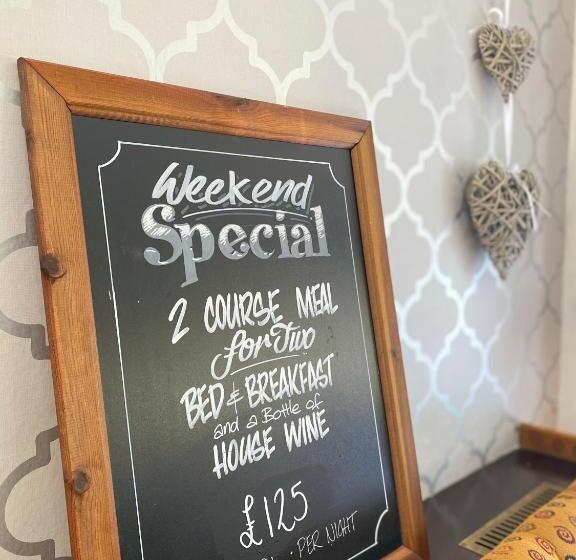 Weekend
Special
2 COURSE MEAL
for Two
BED & BREAKFAST
and a Bottle of
HOUSE WINE
£125
PER NIGHT